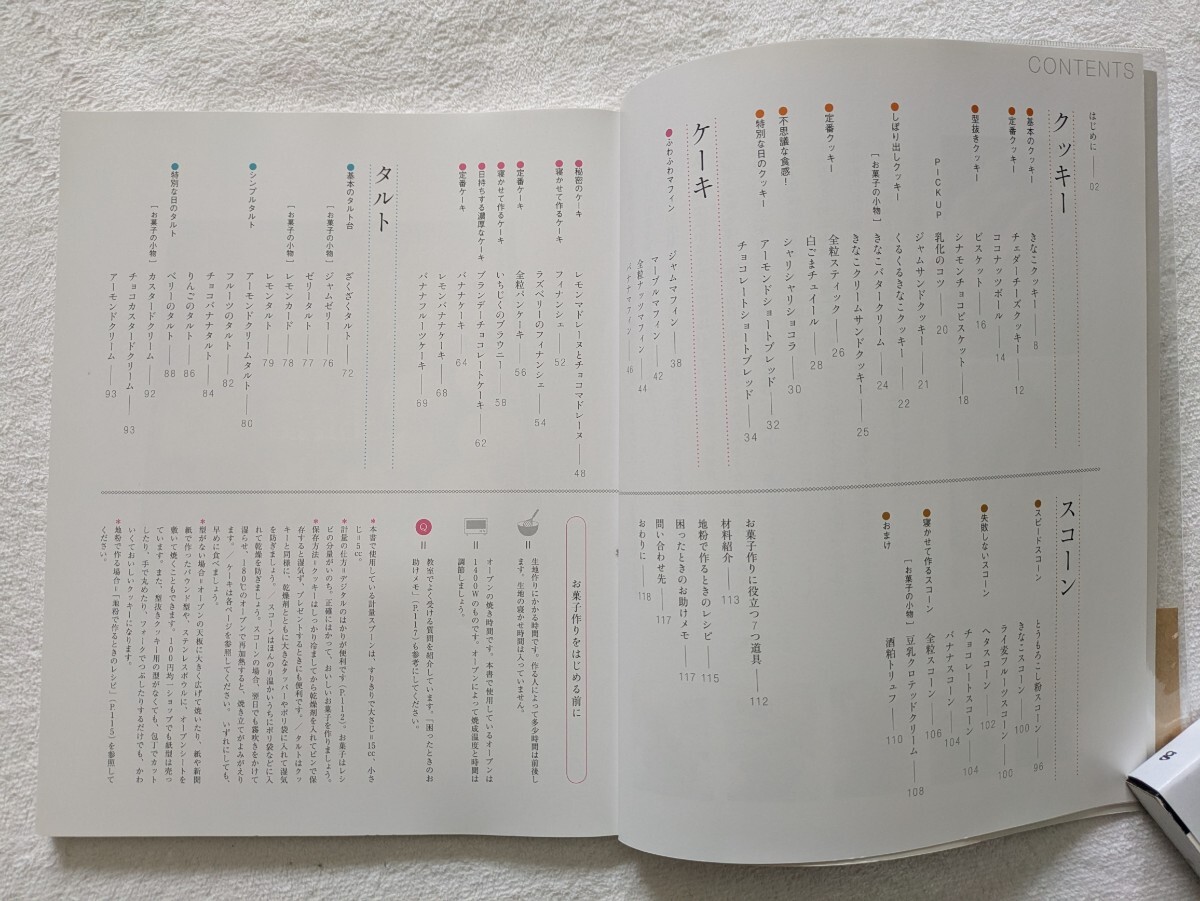 CONTENTS
はじめに——02
クッキー
●基本のクッキー
きなこクッキー——8
●定番クッキー
チェダーチーズクッキー——12
ココナッツボール——14
●型抜きクッキー
ビスケット——16
シナモンチョコビスケット——18
PICKUP
乳化のコツ——20
●しぼり出しクッキー
ジャムサンドクッキー——21
くるくるきなこクッキー——22
[お菓子の小物]
きなこバタークリーム——24
きなこクリームサンドクッキー——25
●定番クッキー
全粒スティック——26
白ごまチュイール——28
●不思議な食感!
シャリシャリショコラ——30
●特別な日のクッキー
アーモンドショートブレッド——32
チョコレートショートブレッド——34
ケーキ
●ふわふわマフィン
ジャムマフィン——38
マーブルマフィン——42
全粒ナッツマフィン——44
バナナマフィン——46
スコーン
●スピードスコーン
とうもろこし粉スコーン——96
きなこスコーン——100
ライ麦フルーツスコーン——100
●失敗しないスコーン
ヘタスコーン——102
チョコレートスコーン——104
バナナスコーン——104
●寝かせて作るスコーン
全粒スコーン——106
[お菓子の小物]
豆乳クロテッドクリーム——108
●おまけ
酒粕トリュフ——110
お菓子作りに役立つ7つ道具——112
材料紹介——113
地粉で作るときのレシピ——115
困ったときのお助けメモ——117
問い合わせ先——117
おわりに——118
●秘密のケーキ
レモンマドレーヌとチョコマドレーヌ——48
●寝かせて作るケーキ
フィナンシェ——52
ラズベリーのフィナンシェ——54
●定番ケーキ
全粒パンケーキ——56
●寝かせて作るケーキ
いちじくのブラウニー——58
●日持ちする濃厚なケーキ
ブランデーチョコレートケーキ——62
●定番ケーキ
バナナケーキ——64
レモンバナナケーキ——68
バナナフルーツケーキ——69
タルト
●基本のタルト台
ざくざくタルト——72
[お菓子の小物]
ジャムゼリー——76
ゼリータルト——77
[お菓子の小物]
レモンカード——78
レモンタルト——79
●シンプルタルト
アーモンドクリームタルト——80
フルーツのタルト——82
チョコバナナタルト——84
りんごのタルト——86
●特別な日のタルト
ベリーのタルト——88
[お菓子の小物]
カスタードクリーム——92
チョコカスタードクリーム——93
アーモンドクリーム——93
お菓子作りをはじめる前に
=
生地作りにかかる時間です。作る人によって多少時間は前後し
ます。生地の寝かせ時間は入っていません。
=
オーブンの焼き時間です。本書で使用しているオーブンは
1400Wのものです。オーブンによって焼成温度と時間は
調節しましょう。
Q=
教室でよく受ける質問を紹介しています。「困ったときのお
助けメモ」(P.117)も参考にしてください。
*本書で使用している計量スプーンは、すりきりで大さじ=15cc、小さ
じ=5cc。
*計量の仕方=デジタルのはかりが便利です(P.112)。お菓子はレシ
ピの分量がいのち。正確にはかって、おいしいお菓子を作りましょう。
*保存方法=クッキーはしっかり冷ましてから乾燥剤を入れてビンで保
存すると湿気ず、プレゼントするときにも便利です。／タルトはクッ
キーと同様に、乾燥剤とともに大きなタッパーやポリ袋に入れて湿気
を防ぎましょう。／スコーンはほんのり温かいうちにポリ袋などに入
れて乾燥を防ぎましょう。スコーンの場合、翌日でも霧吹きをかけて
湿らせ、180℃のオーブンで再加熱すると、焼き立てがよみがえり
ます。／ケーキは各ページを参照してください。いずれにしても、
早めに食べましょう。
*型がない場合=オーブンの天板に大きく広げて焼いたり、紙や新聞
紙で作ったパウンド型や、ステンレスボウルに、オーブンシートを
敷いて焼くこともできます。100円均一ショップでも紙型は売っ
ています。また、型抜きクッキー用の型がなくても、包丁でカット
したり、手で丸めたり、フォークでつぶしたりするだけでも、かわ
いくておいしいクッキーになります。
*地粉で作る場合=「地粉で作るときのレシピ」(P.115)を参照して
ください。